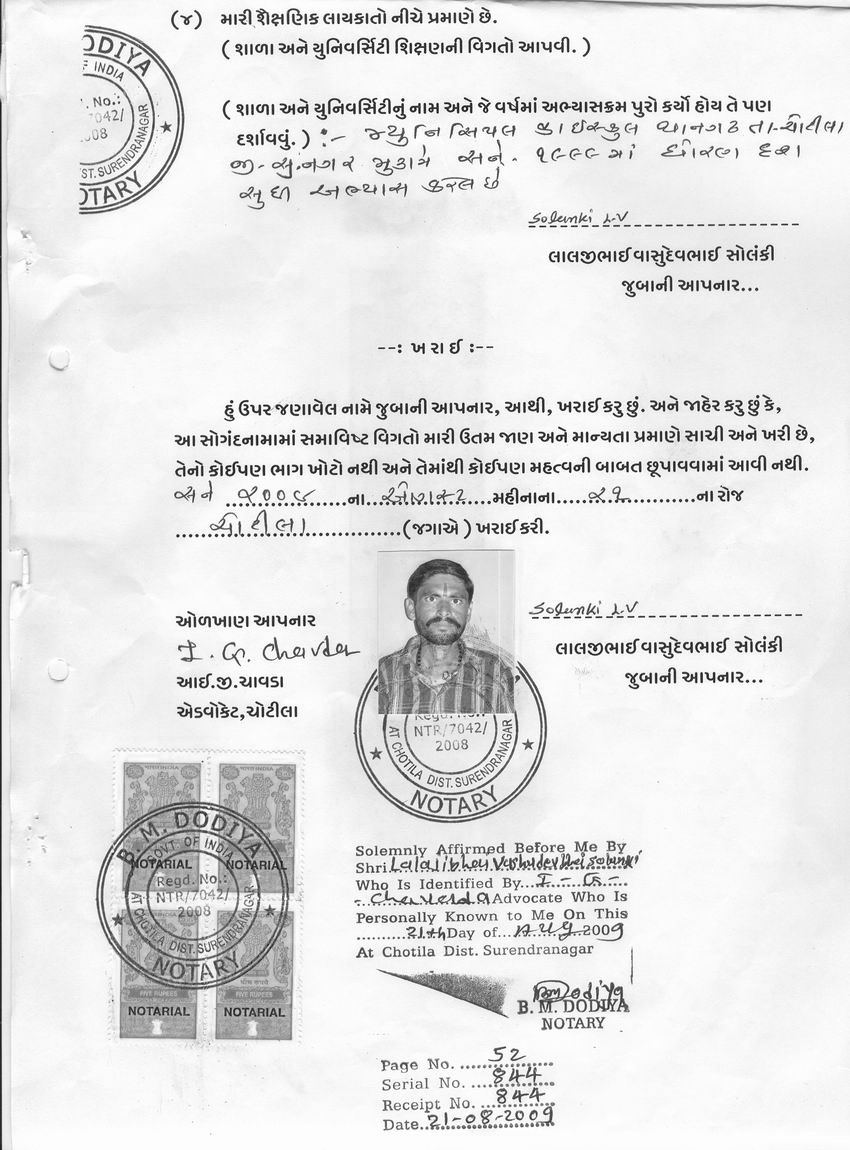 (૪) મારી શૈક્ષણિક લાયકાતો નીચે પ્રમાણે છે.
( શાળા અને યુનિવર્સિટી શિક્ષણની વિગતો આપવી. )
( શાળા અને યુનિવર્સિટીનું નામ અને જે વર્ષમાં અભ્યાસક્રમ પુરો કર્યો હોય તે પણ
દર્શાવવું. ) :- મ્યુનિસિપલ હાઈસ્કુલ થાનગઢ તા-ચોટીલા
જી-સુ.નગર મુકામે સને- ૧૯૯૯માં ધોરણ દશ
સુધી અભ્યાસ કરેલ છે
Solanki L.V
લાલજીભાઈ વાસુદેવભાઈ સોલંકી
જુબાની આપનાર...
--: ખ રા ઈ :--
હું ઉપર જણાવેલ નામે જુબાની આપનાર, આથી, ખરાઈ કરુ છું. અને જાહેર કરુ છું કે,
આ સોગંદનામામાં સમાવિષ્ટ વિગતો મારી ઉતમ જાણ અને માન્યતા પ્રમાણે સાચી અને ખરી છે,
તેનો કોઈપણ ભાગ ખોટો નથી અને તેમાંથી કોઈપણ મહત્વની બાબત છૂપાવવામાં આવી નથી.
સને ૨૦૦૯ ના ઓગસ્ટ મહીનાના ૨૧ ના રોજ
ચોટીલા (જગાએ ) ખરાઈ કરી.
ઓળખાણ આપનાર
I. G. Chavda
આઈ.જી.ચાવડા
એડવોકેટ,ચોટીલા
Solanki L.V
લાલજીભાઈ વાસુદેવભાઈ સોલંકી
જુબાની આપનાર...
Regd. No.:
NTR/7042/
2008
AT CHOTILA DIST. SURENDRANAGAR
NOTARY
B. M. DODIYA
GOVT. OF INDIA
Regd. No.:
NTR/7042/
2008
AT CHOTILA DIST. SURENDRANAGAR
NOTARY
NOTARIAL NOTARIAL
FIVE RUPEES FIVE RUPEES
NOTARIAL NOTARIAL
DODIYA
OF INDIA
No.:
7042/
008
DIST. SURENDRANAGAR
NOTARY
Solemnly Affirmed Before Me By
Shri Lalajibhai Vashudevbhai Solanki
Who Is Identified By I - G -
Chavda Advocate Who Is
Personally Known to Me On This
21th Day of Aug 2009
At Chotila Dist. Surendranagar
BM Dodiya
B. M. DODIYA
NOTARY
Page No. 52
Serial No. 844
Receipt No. 844
Date 21-08-2009